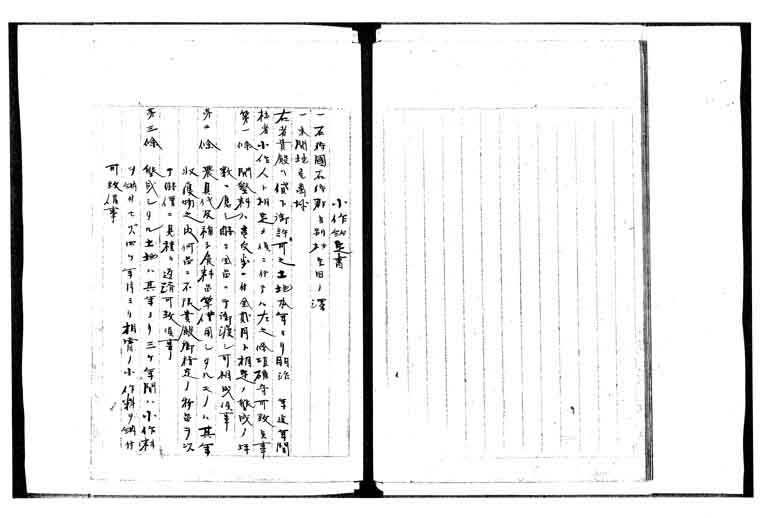 小作約定書
一石狩國石狩郡当別村
一未開地壱萬坪
右者貴殿ヘ貸下御許可之土地本年ヨリ明治 年迄 年間
拙者小作人ト相定メ候ニ付テハ左之條項確守可致候事
第一條 開墾料ハ壱反歩ニ付金貳円ト相定メ墾成ノ坪
数ニ應シ 金 御渡シ可相成候事
第二條 農具代及種子食料品等借用シタルモノハ其年
収穫物之内何品ニ不限貴殿御指定ノ物品ヲ以
テ 返済可致候事
第三條 墾成シタル土地ハ其年ヨリ三ヶ年間ハ小作料
ヲ納付セズ四ヶ年目ヨリ相当ノ小作料ヲ納付
可致候事